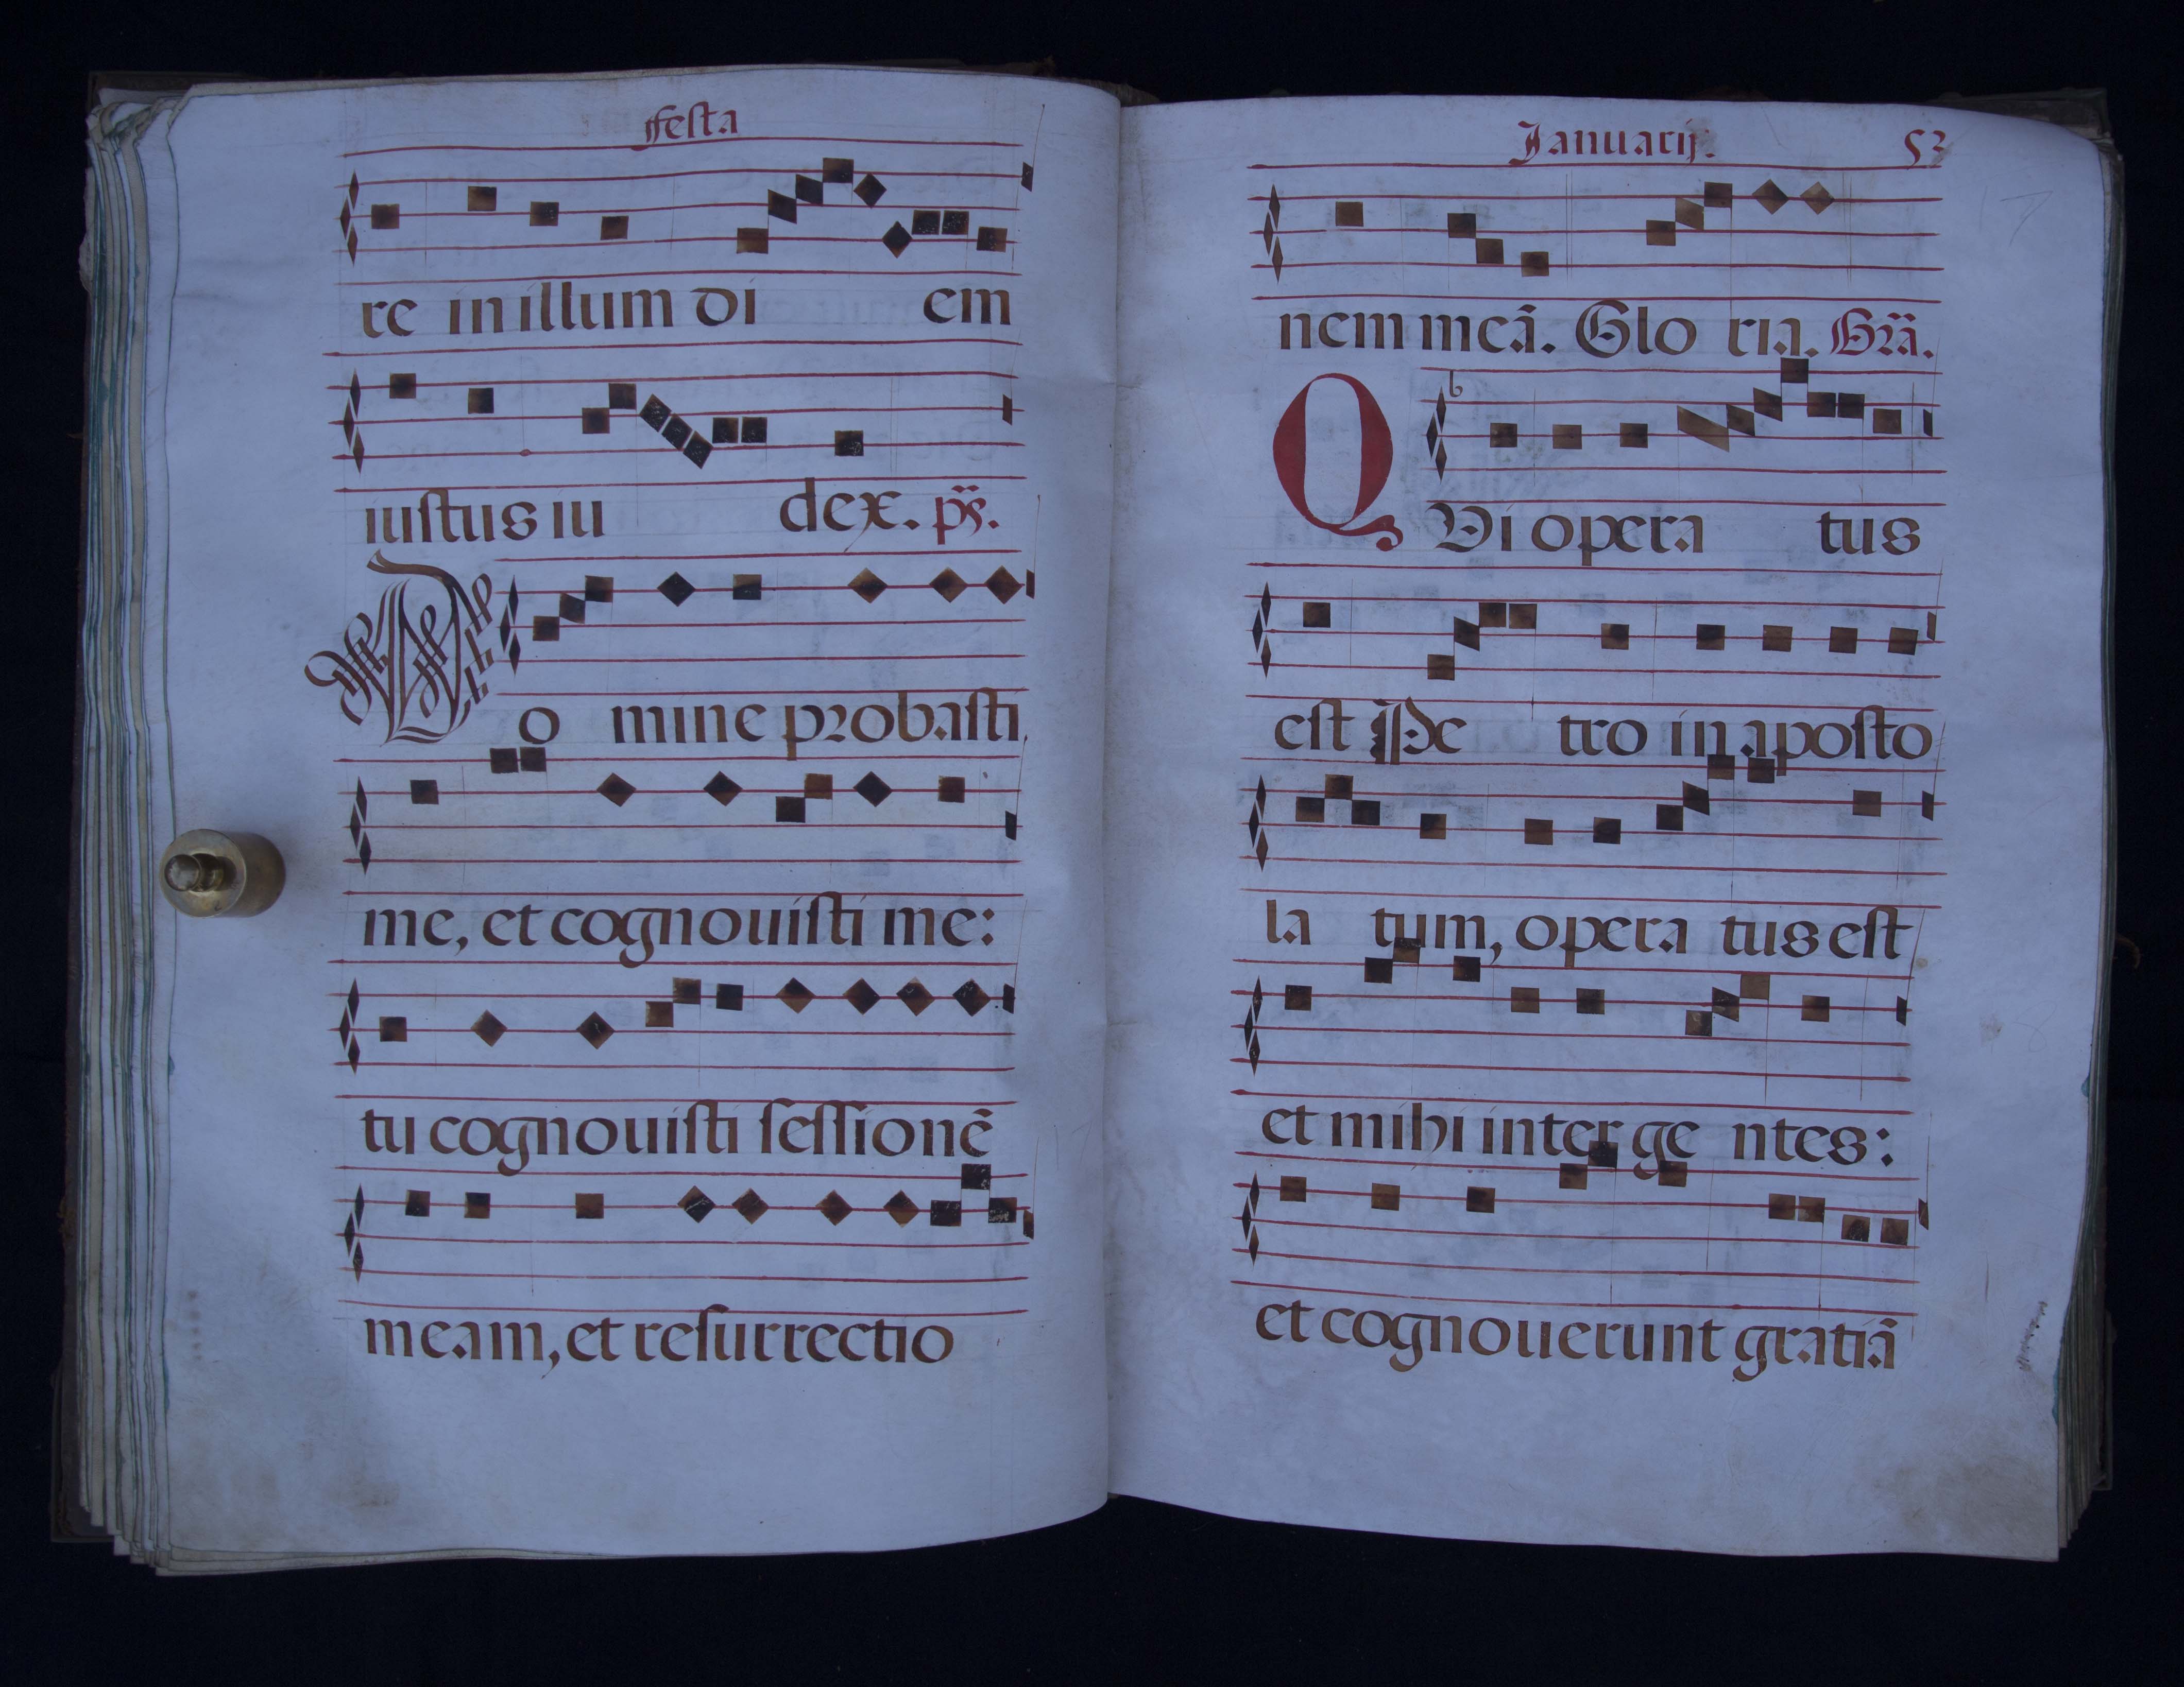 Festa
re in illum di em
iustus iu dex. ps.
Do mine probasti
me, et cognouisti me:
tu cognouisti sessionẽ
meam, et resurrectio
Januarij. 53
nem meã. Glo ria. Grã.
QVi opera tus
est Pe tro in aposto
la tum, opera tus est
et mihi inter ge ntes:
et cognouerunt gratiã